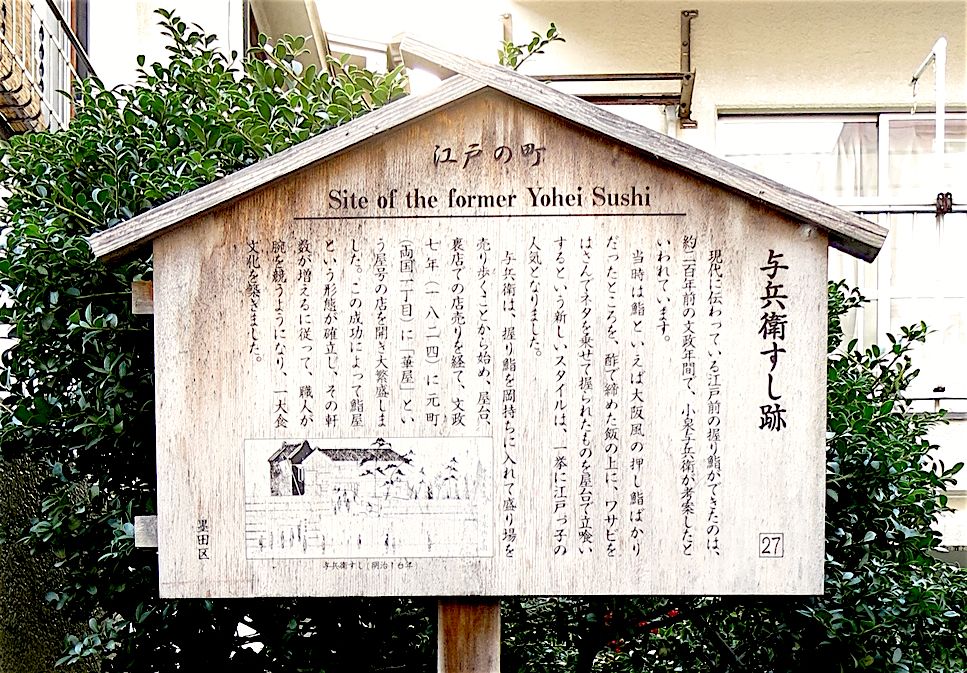 江戸の町
Site of the former Yohei Sushi
与兵衛すし跡
現代に伝わっている江戸前の握り鮨ができたのは、
約二百年前の文政年間で、小泉与兵衛が考案したと
いわれています。
当時は鮨といえば大阪風の押し鮨ばかり
だったところを、酢で締めた飯の上に、ワサビを
はさんでネタを乗せて握られたものを屋台で立喰い
するという新しいスタイルは、一挙に江戸っ子の
人気となりました。
与兵衛は、握り鮨を岡持ちに入れて盛り場を
売り歩くことから始め、屋台、
裏店での店売りを経て、文政
七年(一八二四)に元町
(両国一丁目)に「華屋」とい
う屋号の店を開き大繁盛しま
した。この成功によって鮨屋
という形態が確立し、その軒
数が増えるに従って、職人が
腕を競うようになり、一大食
文化を築きました。
27
与兵衛すし(明治16年)
墨田区